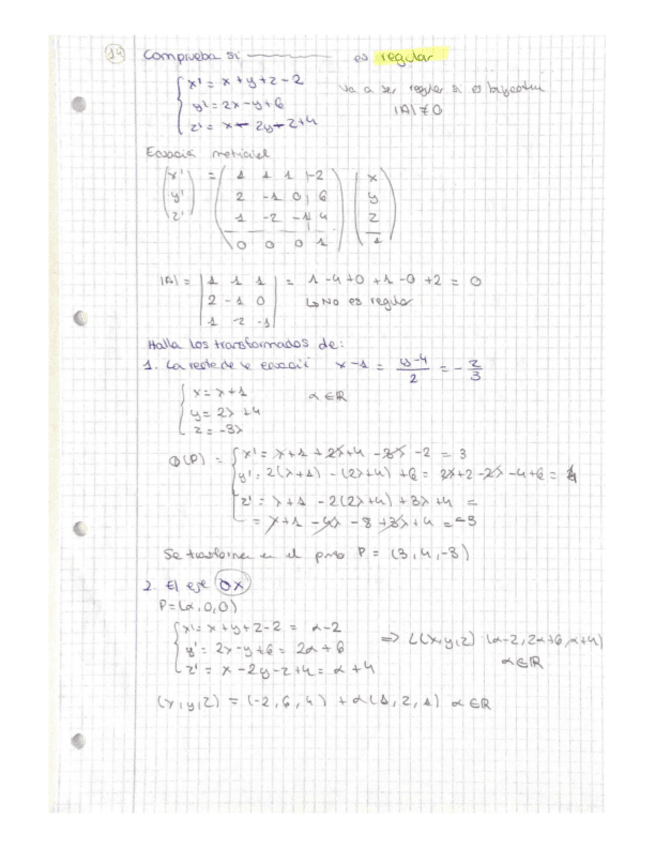 14 Comprueba si ———— es regular
x' = x + y + z - 2
y' = 2x - y + 6
z' = x - 2y - z + 4
va a ser regular si es biyectiva
|A| ≠ 0
Ecuació matricial
(x' y' z') = (1 1 1 | -2
2 -1 0 | 6
1 -2 -1 | 4
0 0 0 1) (x y z 1)
|A| = |1 1 1
2 -1 0
1 -2 -1| = 1 - 4 + 0 + 1 - 0 + 2 = 0
↳ No es regular
Halla los transformados de:
1. La recta de ecuació x - 1 = (y - 4)/2 = - z/3
x = λ + 1
y = 2λ + 4
z = -3λ
α ∈ ℝ
x' = λ + 1 + 2λ + 4 - 3λ - 2 = 3
y' = 2(λ + 1) - (2λ + 4) + 6 = 2λ + 2 - 2λ - 4 + 6 = 4
z' = λ + 1 - 2(2λ + 4) + 3λ + 4 =
= λ + 1 - 4λ - 8 + 3λ + 4 = -3
Se transforma en el P = (3, 4, -3)
2. El eje OX
P = (α, 0, 0)
x' = x + y + z - 2 = α - 2
y' = 2x - y + 6 = 2α + 6
z' = x - 2y - z + 4 = α + 4
⇒ L(x, y, z) (α - 2, 2α + 6, α + 4)
α ∈ ℝ
(x, y, z) = (-2, 6, 4) + α(1, 2, 1) α ∈ ℝ